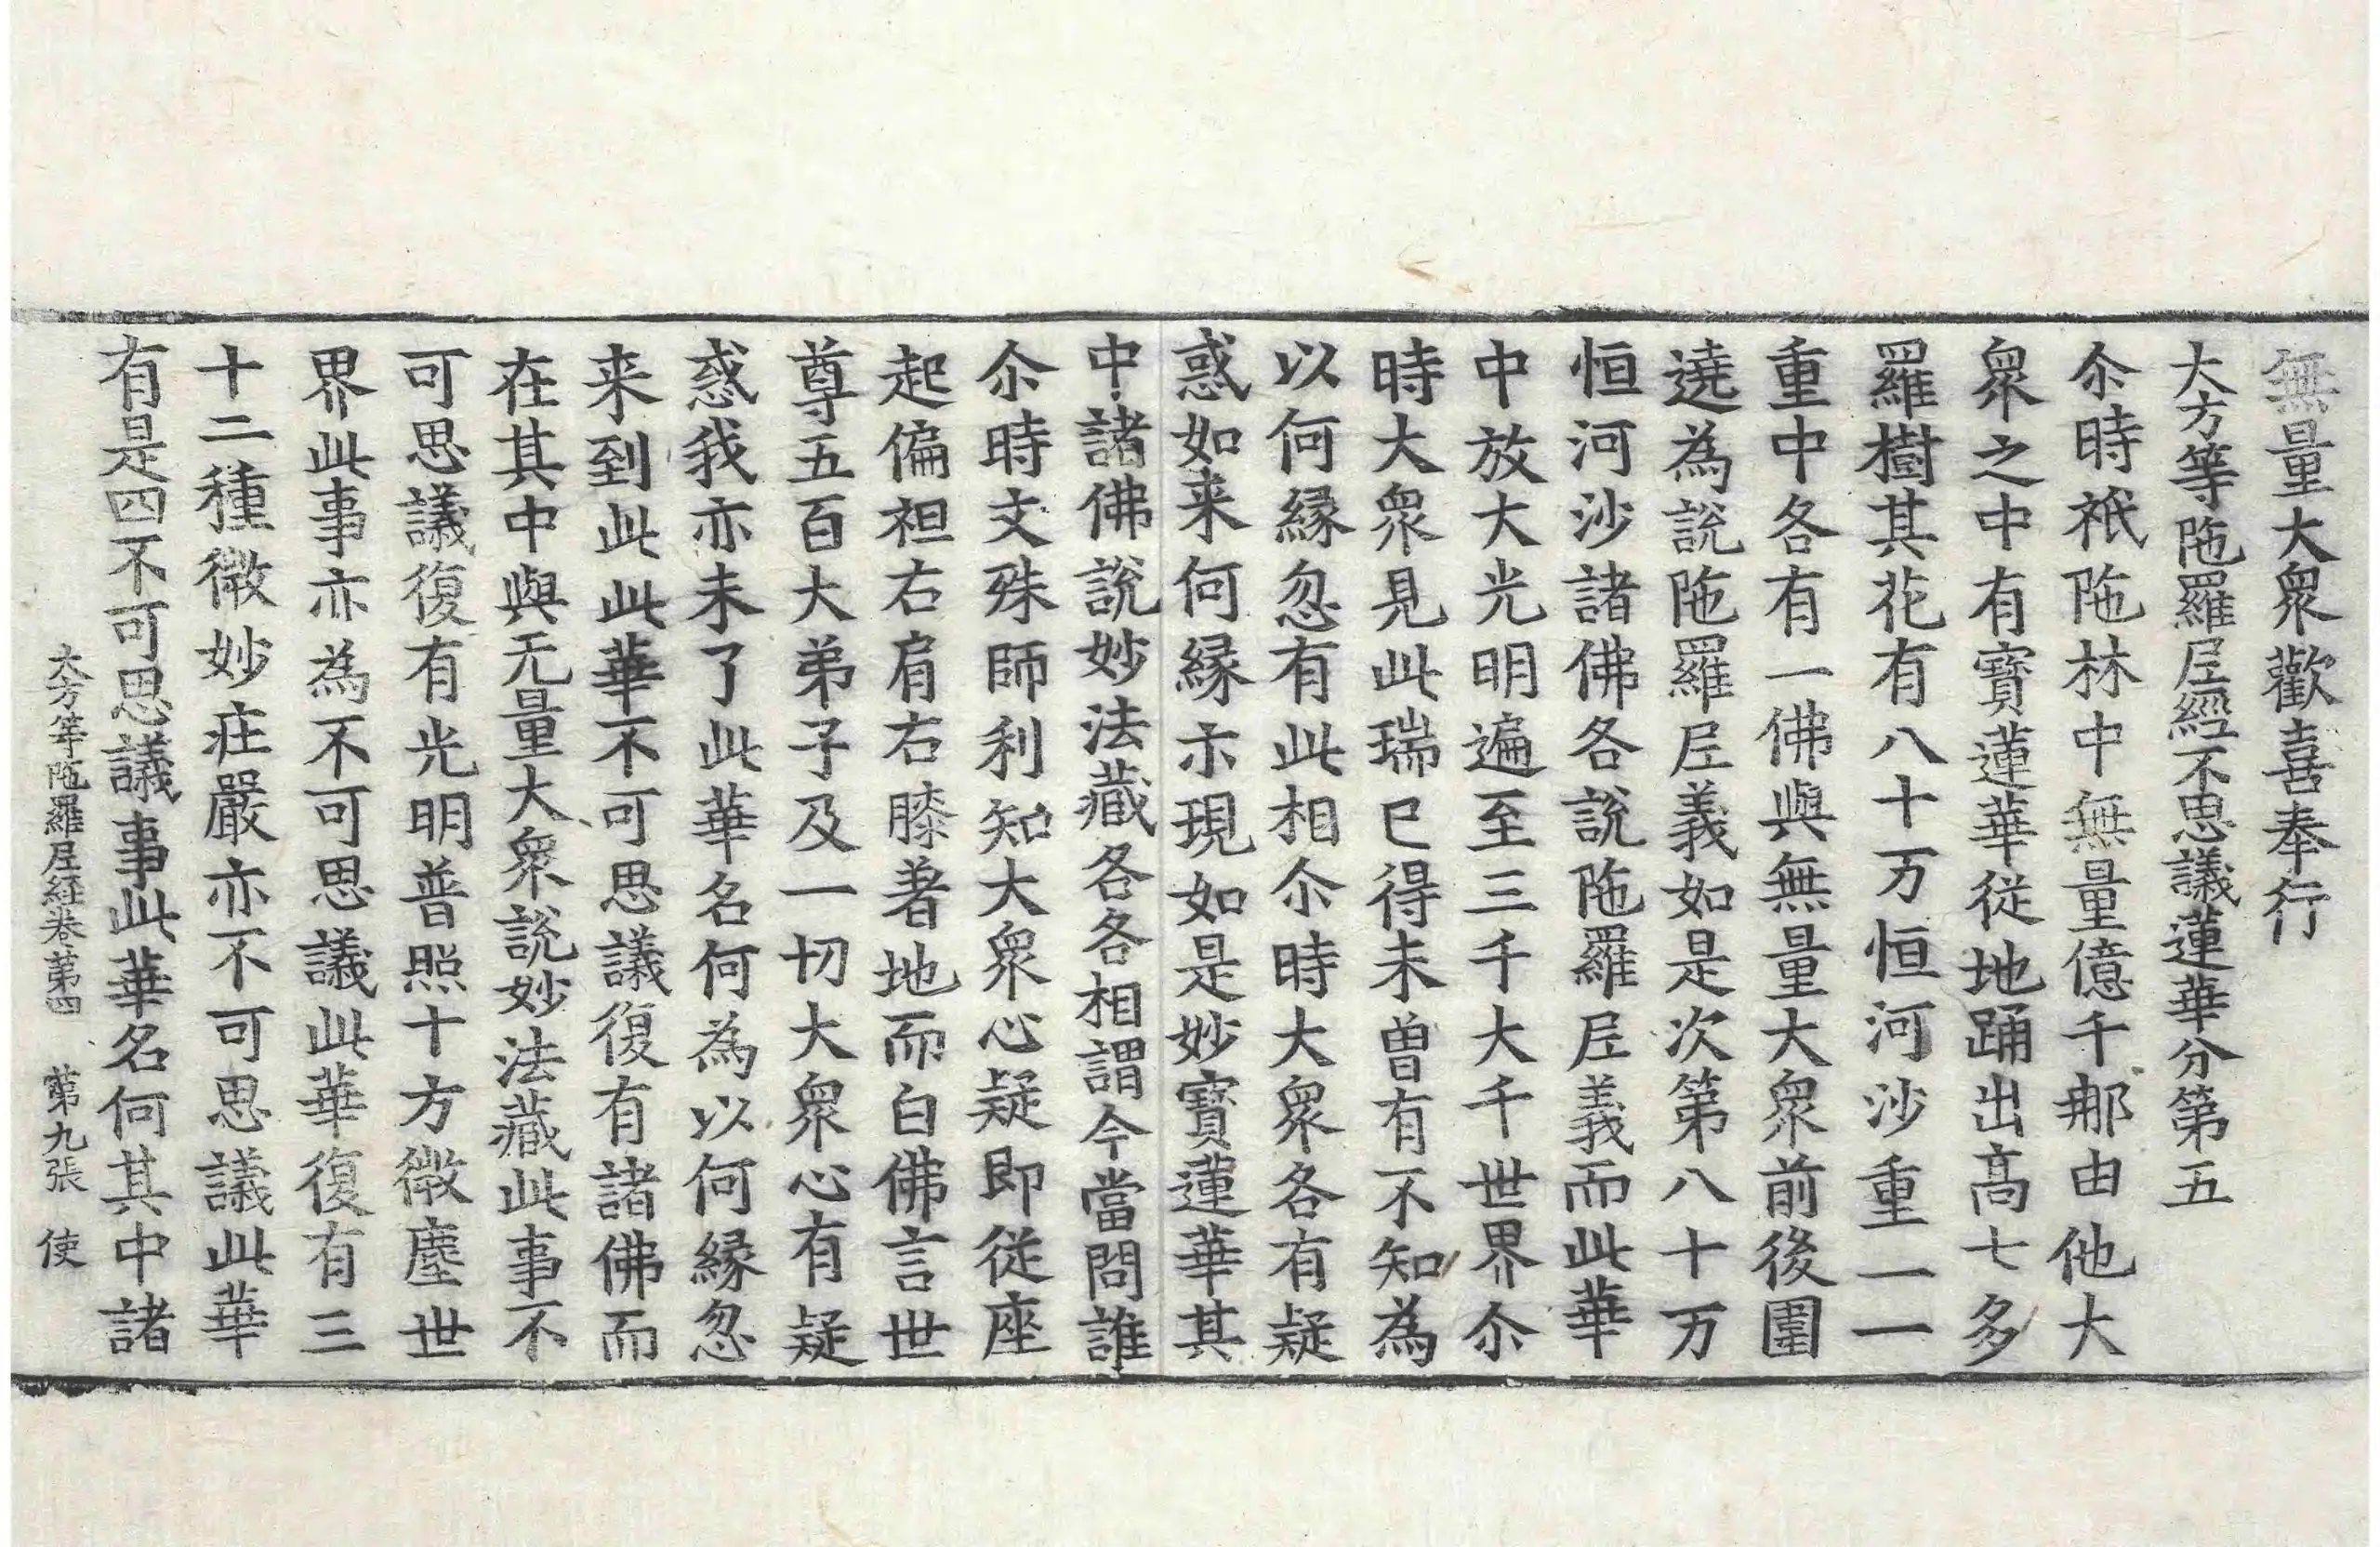 無量大衆歡喜奉行
大方等陁羅尼經不思議蓮華分第五
尒時祇陁林中無量億千那由他大
衆之中有寶蓮華從地踊出高七多
羅樹其花有八十万恒河沙重一一
重中各有一佛與無量大衆前後圍
遶為說陁羅尼義如是次第八十万
恒河沙諸佛各說陁羅尼義而此華
中放大光明遍至三千大千世界尒
時大衆見此瑞已得未曾有不知為
以何緣忽有此相尒時大衆各有疑
惑如来何緣示現如是妙寶蓮華其
中諸佛說妙法藏各各相謂今當問誰
尒時文殊師利知大衆心疑即從座
起偏袒右肩右膝著地而白佛言世
尊五百大弟子及一切大衆心有疑
惑我亦未了此華名何為以何緣忽
来到此此華不可思議復有諸佛而
在其中與无量大衆說妙法藏此事不
可思議復有光明普照十方微塵世
界此事亦為不可思議此華復有三
十二種微妙莊嚴亦不可思議此華
有是四不可思議事此華名何其中諸
大方等陁羅尼経卷第四 第九張 使